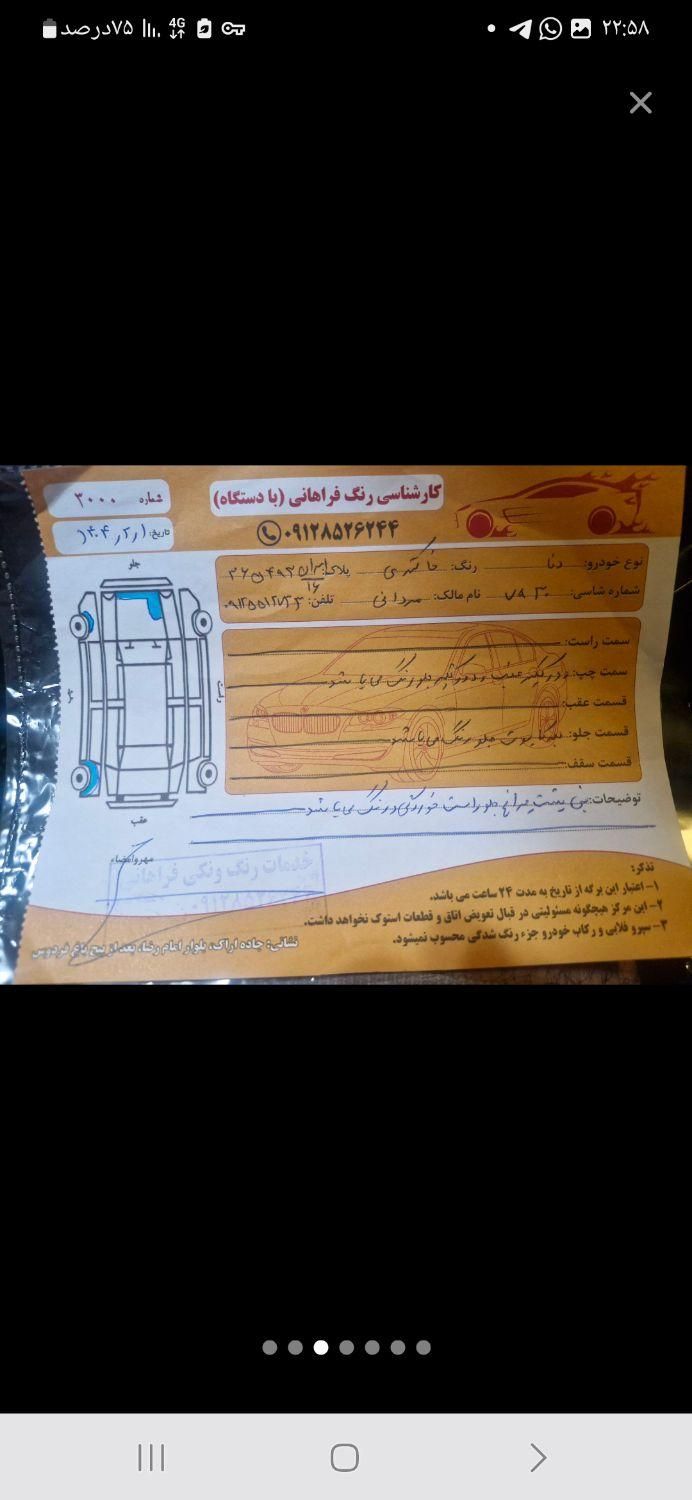 ۷۵درصد 4G ۲۲:۵۸
کارشناسی رنگ فراهانی (با دستگاه)
شماره ۳۰۰۰
۰۹۱۲۸۵۲۶۲۴۴
تاریخ:
نوع خودرو: دنا رنگ: خاکستری پلاک: ایران
۱۶
شماره شاسی: نام مالک: مردانی تلفن:
جلو
سمت راست:
سمت چپ: عقب جلو رنگ می باشد
قسمت عقب:
قسمت جلو: جلو رنگ می باشد
قسمت سقف:
چپ
راست
توضیحات: پشت چراغ جلو راست خوردگی و رنگ می باشد
عقب
مهر و امضاء
خدمات رنگ ونکی فراهانی
تذکر:
۱- اعتبار این برگه از تاریخ به مدت ۲۴ ساعت می باشد.
۲- این مرکز هیچگونه مسئولیتی در قبال تعویض اتاق و قطعات استوک نخواهد داشت.
۳- سپرو قلابی و رکاب خودرو جزء رنگ شدگی محسوب نمیشود.
نشانی: جاده اراک، بلوار امام رضا، بعد از پیچ باغ فردوس